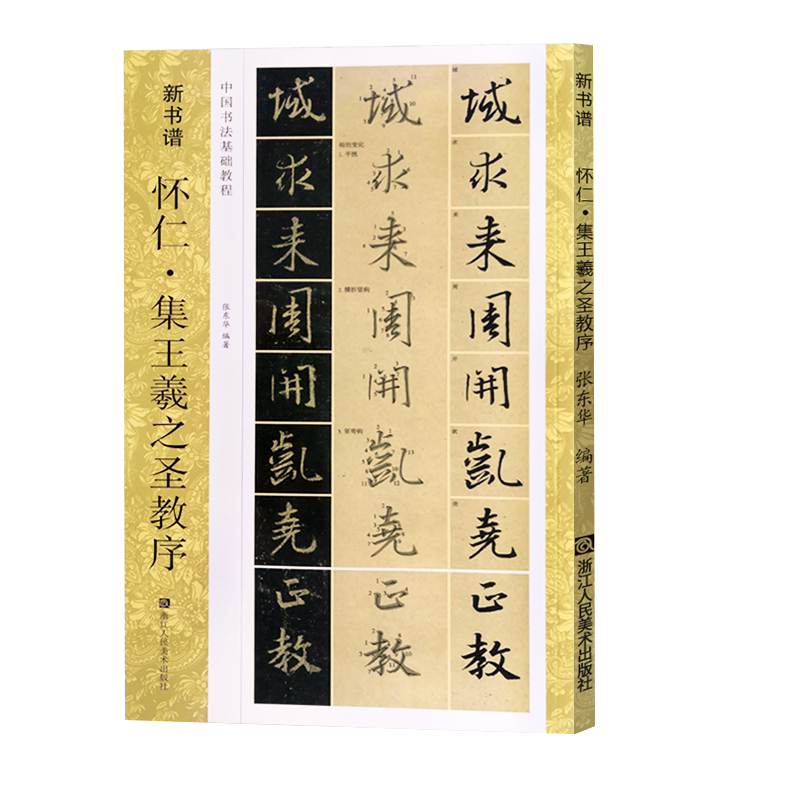 新书谱
怀仁·集王羲之圣教序
浙江人民美术出版社
中国书法基础教程
张东华 编著
域 域 域
求 求 求
来 来 来
周 周 周
開 開 開
凱 凱 凱
堯 堯 堯
正 正 正
教 教 教
钩的变化
1. 平钩
2. 横折竖钩
3. 竖弯钩
新书谱 怀仁·集王羲之圣教序 张东华 编著 浙江人民美术出版社